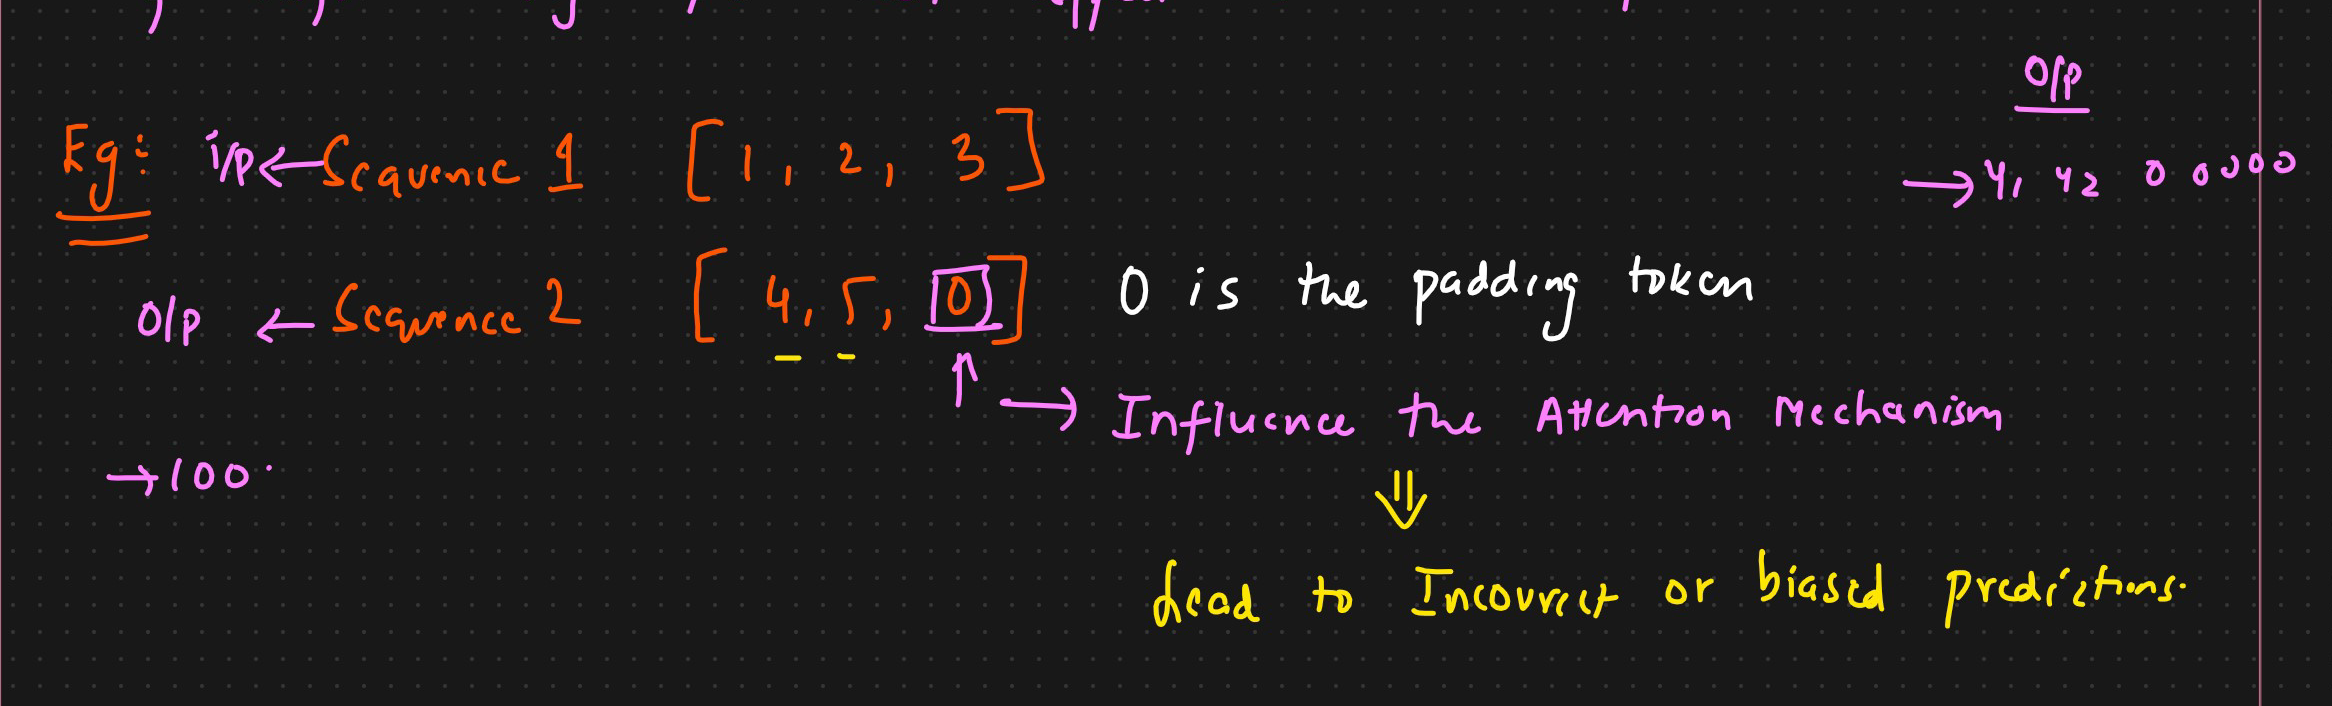 O/p
Eg: i/p ← Sequence 1 [1, 2, 3]
→ y1 y2 0 0 0 0 0
O/p ← Sequence 2 [4, 5, 0] 0 is the padding token
→ Influence the Attention Mechanism
→ 100.
⇓
Lead to Incorrect or biased predictions.